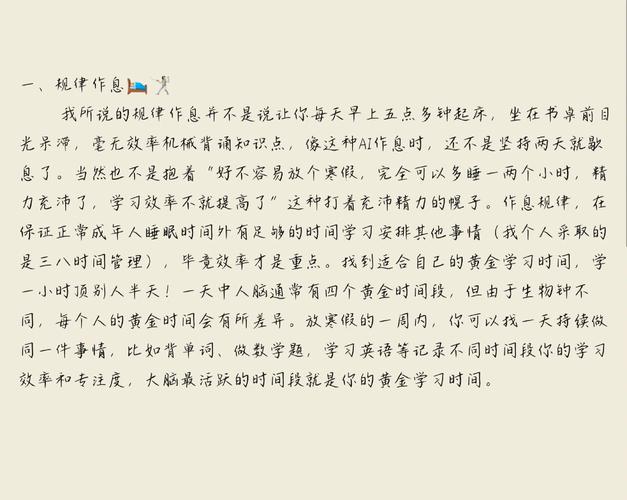 一、规律作息🛌🏋
我所说的规律作息并不是说让你每天早上五点多钟起床，坐在书桌前目
光呆滞，毫无效率机械背诵知识点，像这种AI作息时，还不是坚持两天就歇
息了。当然也不是抱着“好不容易放个寒假，完全可以多睡一两个小时，精
力充沛了，学习效率不就提高了”这种打着充沛精力的幌子。作息规律，在
保证正常成年人睡眠时间外有足够的时间学习安排其他事情（我个人采取的
是三八时间管理），毕竟效率才是重点。找到适合自己的黄金学习时间，学
一小时顶别人半天！一天中人脑通常有四个黄金时间段，但由于生物钟不
同，每个人的黄金时间会有所差异。放寒假的一周内，你可以找一天持续做
同一件事情，比如背单词、做数学题，学习英语等记录不同时间段你的学习
效率和专注度，大脑最活跃的时间段就是你的黄金学习时间。